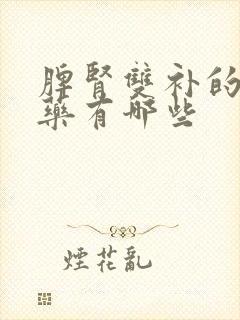 脾腎雙补的
藥有哪些
煙花亂